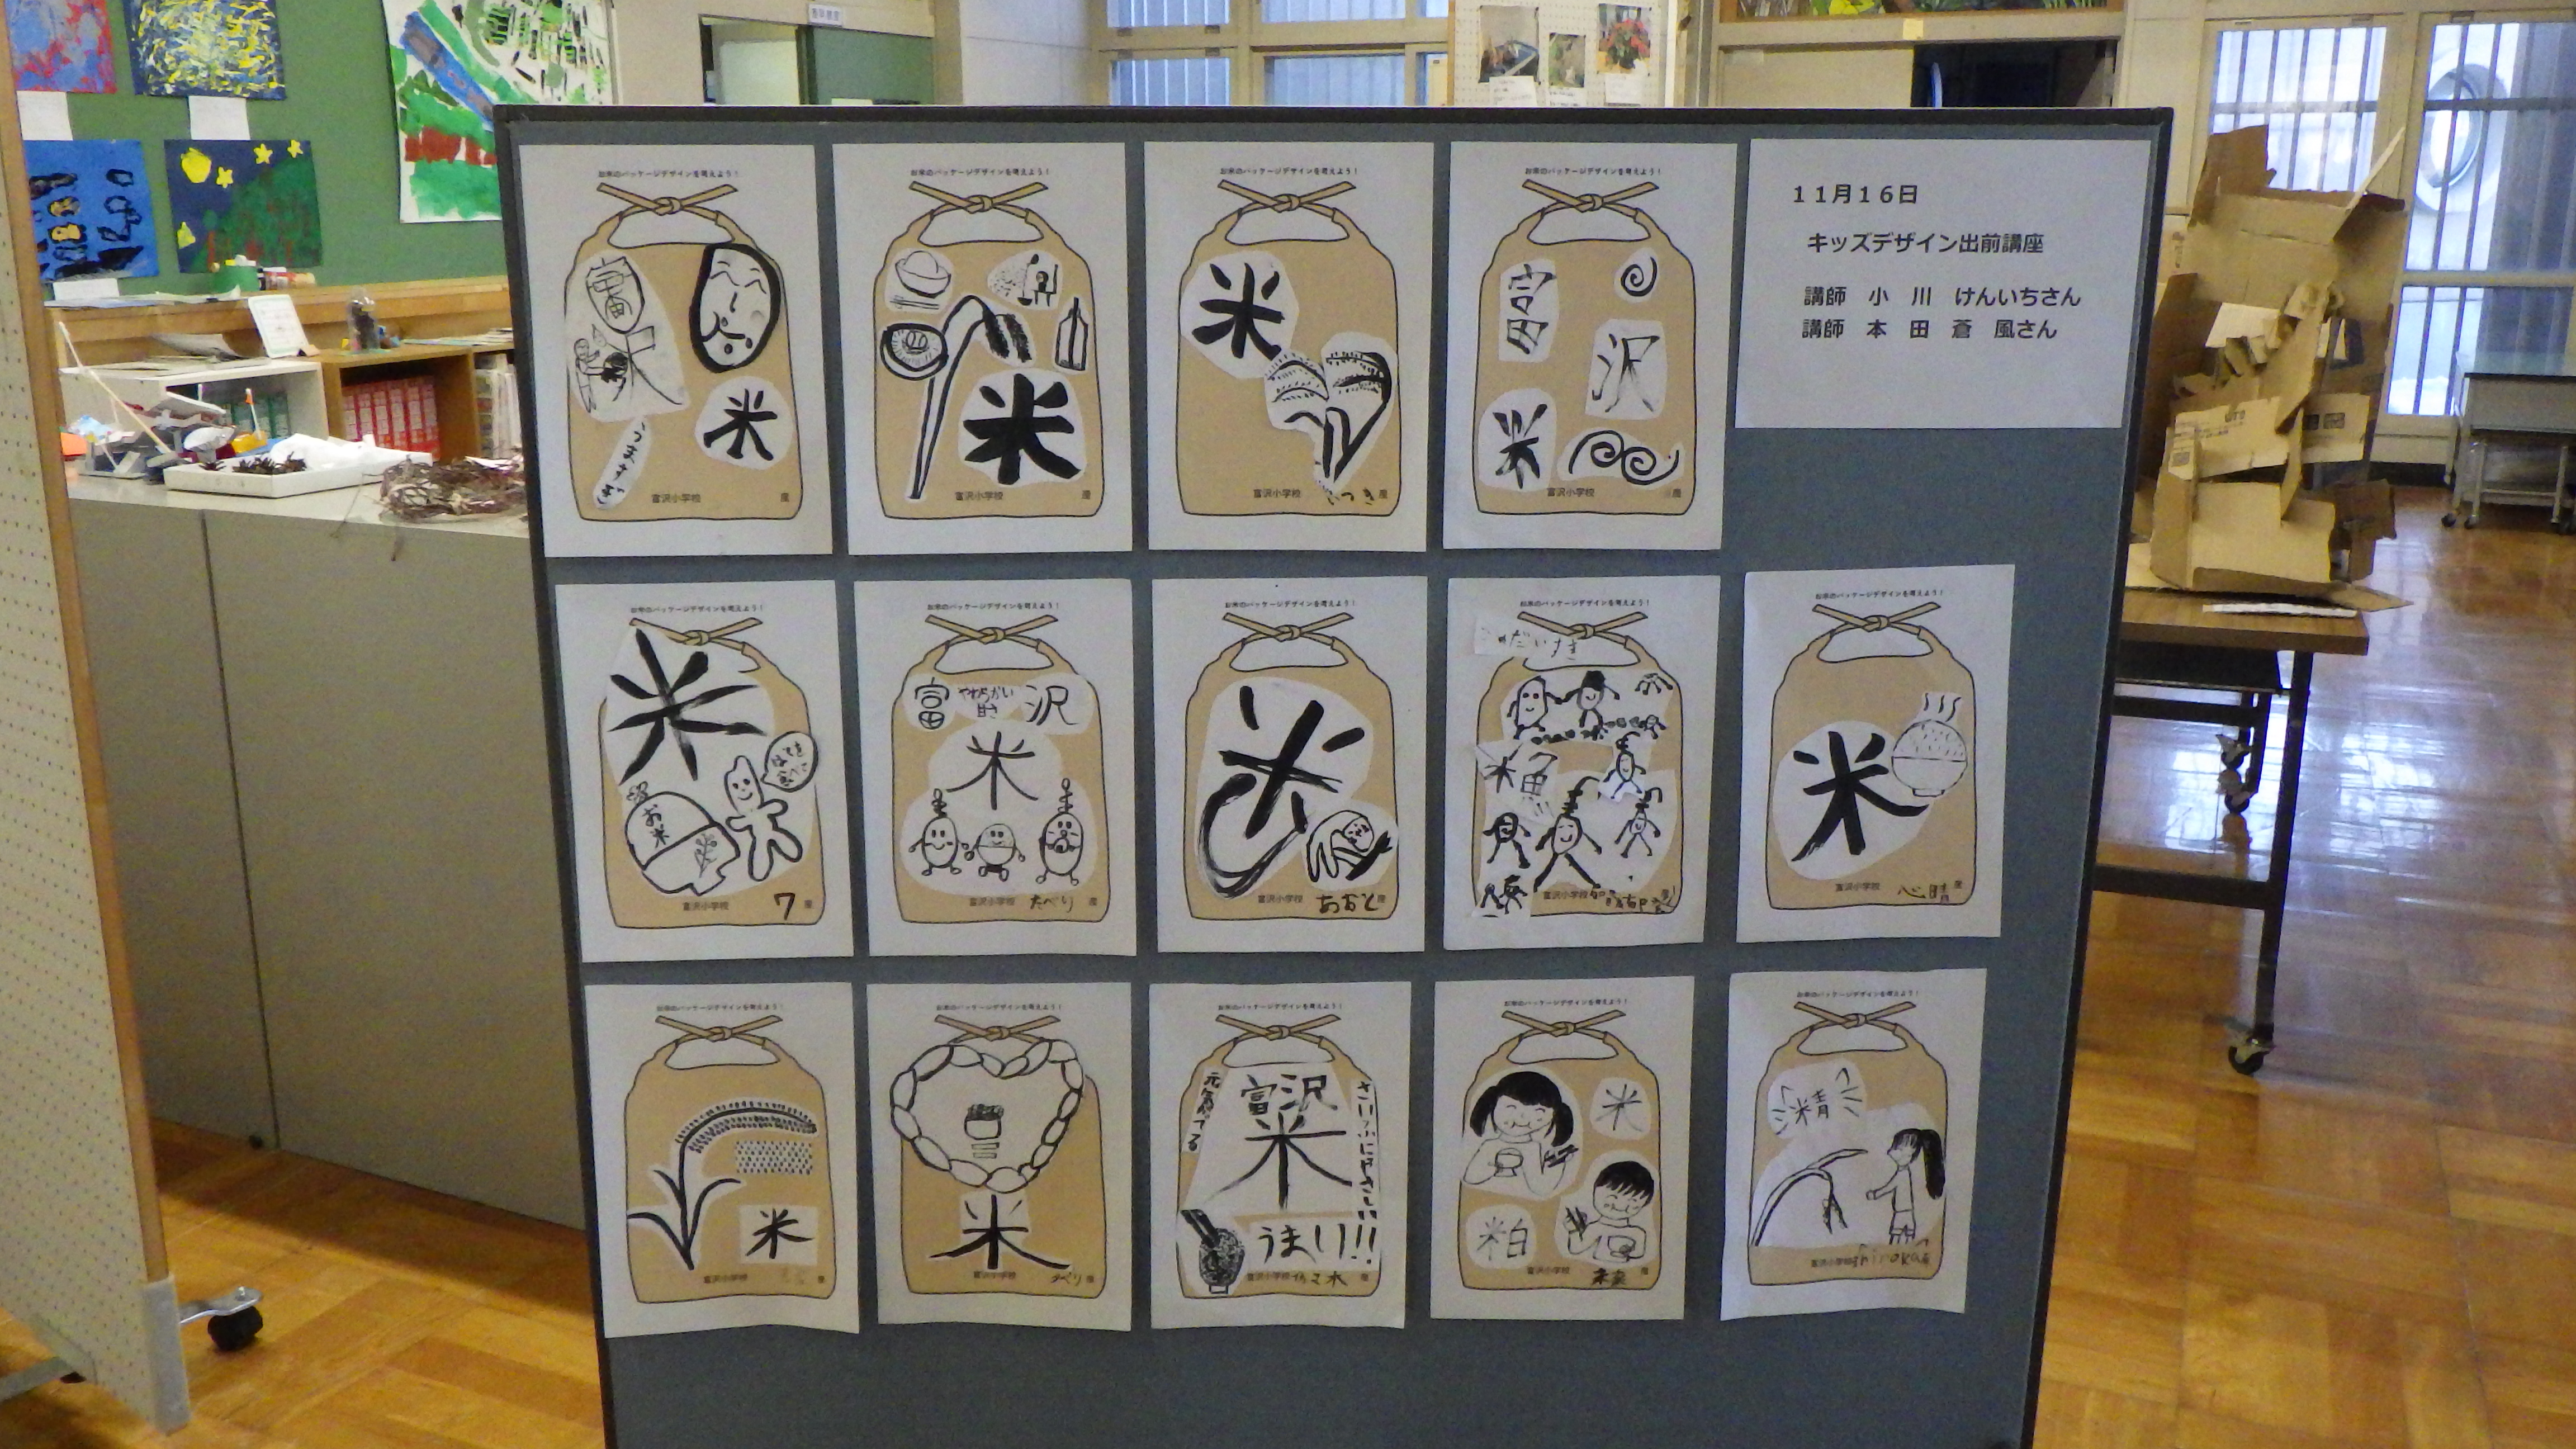 お米のパッケージデザインを考えよう！
富
米
米
富沢小学校 産
お米のパッケージデザインを考えよう！
米
富沢小学校 産
お米のパッケージデザインを考えよう！
米
富沢小学校 産
お米のパッケージデザインを考えよう！
富
沢
米
富沢小学校 産
11月16日
キッズデザイン出前講座
講師 小 川 けんいちさん
講師 本 田 蒼 風さん
お米のパッケージデザインを考えよう！
米
お米
富沢小学校 7 産
お米のパッケージデザインを考えよう！
富 やわらかい 沢
米
富沢小学校 産
お米のパッケージデザインを考えよう！
米
富沢小学校 あおと 産
お米のパッケージデザインを考えよう！
だいすき
米
富沢小学校
お米のパッケージデザインを考えよう！
米
富沢小学校 心晴 産
お米のパッケージデザインを考えよう！
米
富沢小学校 産
お米のパッケージデザインを考えよう！
米
富沢小学校 産
お米のパッケージデザインを考えよう！
富沢
米
さいふにやさしい
うまい!!
富沢小学校 産
お米のパッケージデザインを考えよう！
米
粕
富沢小学校 産
お米のパッケージデザインを考えよう！
精
富沢小学校 shiroka